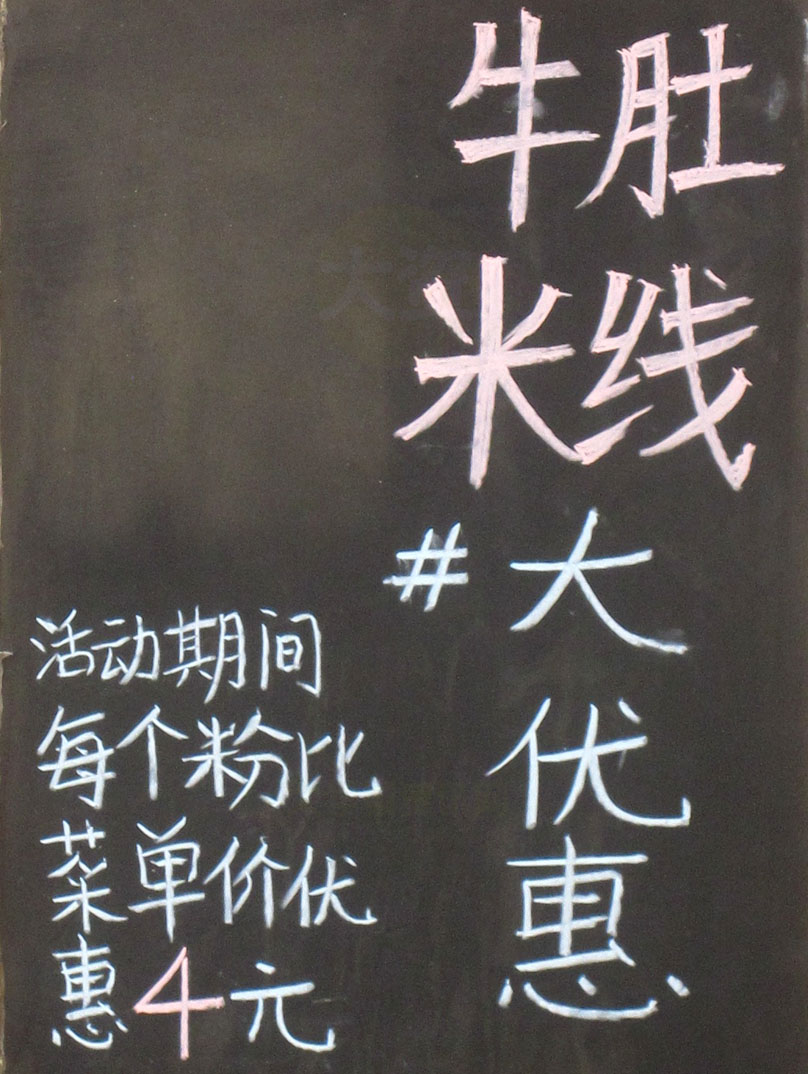 牛肚
米线
#大优惠
活动期间
每个粉比
菜单价优
惠4元